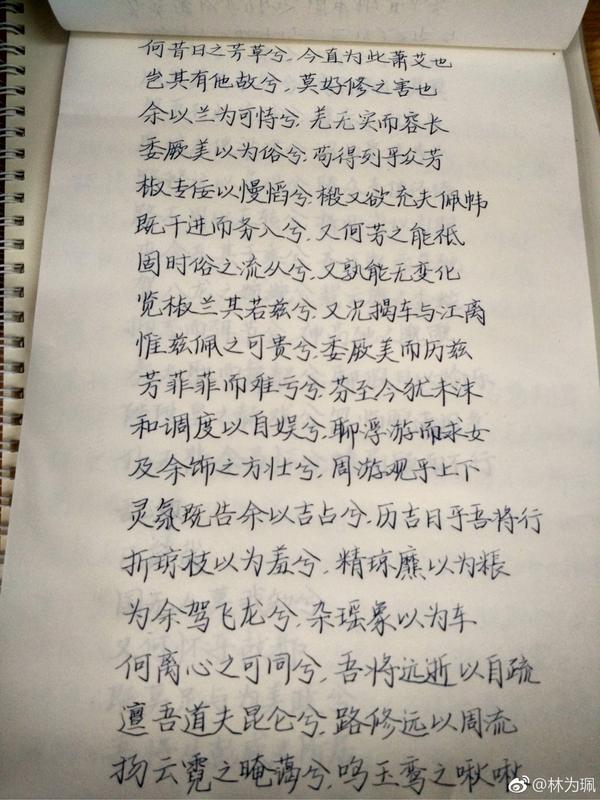 何昔日之芳草兮，今直为此萧艾也
岂其有他故兮，莫好修之害也
余以兰为可恃兮，羌无实而容长
委厥美以为俗兮，苟得列乎众芳
椒专佞以慢慆兮，樧又欲充夫佩帏
既干进而务入兮，又何芳之能祗
固时俗之流从兮，又孰能无变化
览椒兰其若兹兮，又况揭车与江离
惟兹佩之可贵兮，委厥美而历兹
芳菲菲而难亏兮，芬至今犹未沬
和调度以自娱兮，聊浮游而求女
及余饰之方壮兮，周游观乎上下
灵氛既告余以吉占兮，历吉日乎吾将行
折琼枝以为羞兮，精琼爢以为粻
为余驾飞龙兮，杂瑶象以为车
何离心之可同兮，吾将远逝以自疏
邅吾道夫昆仑兮，路修远以周流
扬云霓之晻蔼兮，鸣玉鸾之啾啾
@林为珮